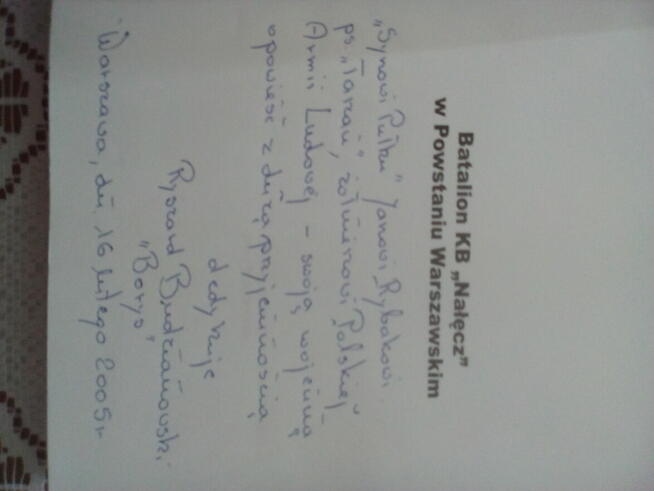 Batalion KB „Nałęcz”
w Powstaniu Warszawskim
„Synowi Pułku” Janowi Rybakowi
ps. „Tarzan”, żołnierzowi Polskiej
Armii Ludowej – swoją wojenną
opowieść z dużą przyjemnością
dedykuje
Ryszard Budzianowski
"Borys"
Warszawa, dn. 16 lutego 2005 r